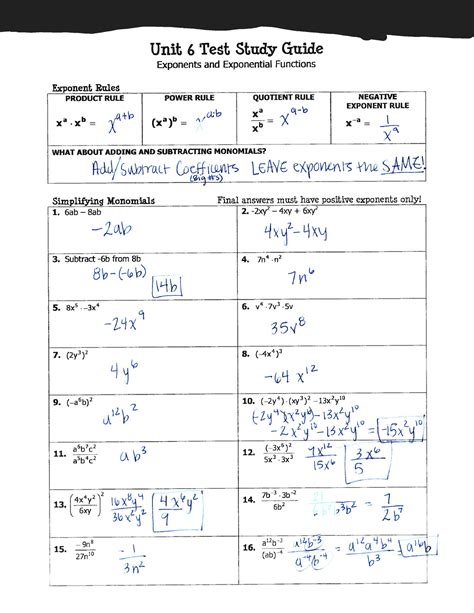 Unit 6 Test Study Guide
Exponents and Exponential Functions
Exponent Rules
PRODUCT RULE POWER RULE QUOTIENT RULE NEGATIVE EXPONENT RULE
xᵃ · xᵇ = xᵃ⁺ᵇ (xᵃ)ᵇ = xᵃᵇ xᵃ/xᵇ = xᵃ⁻ᵇ x⁻ᵃ = 1/xᵃ
WHAT ABOUT ADDING AND SUBTRACTING MONOMIALS?
Add/Subtract Coefficients LEAVE exponents the SAME!
(Big #s)
Simplifying Monomials Final answers must have positive exponents only!
1. 6ab – 8ab
-2ab
2. -2xy² – 4xy + 6xy²
4xy² - 4xy
3. Subtract -6b from 8b
8b-(-6b)
14b
4. 7n⁴ · n²
7n⁶
5. 8x⁵ · -3x⁴
-24x⁹
6. v⁴ · 7v³ · 5v
35v⁸
7. (2y³)²
4y⁶
8. (-4x⁴)³
-64 x¹²
9. (-a⁶b)²
a¹²b²
10. (-2y⁴) · (xy³)² – 13x²y¹⁰
(-2y⁴)(x²y⁶)-13x²y¹⁰
-2x²y¹⁰-13x²y¹⁰ = -15x²y¹⁰
11. a⁶b⁷c²/a⁵b⁴c² ab³
12. (-3x⁶)²/5x³ · 3x³ 9x¹²/15x⁶ 3x⁶/5
13. (4x⁴y²/6xy)² 16x⁸y⁴/36x²y² 4x⁶y²/9
14. 7b⁻³ · 3b⁻²/6b² 7/2b⁷
15. -9n⁸/27n¹⁰ -1/3n²
16. a¹²b⁻³/(ab)⁻⁴ a¹²b⁻³/a⁻⁴b⁻⁴ = a¹²a⁴b⁴/b³ a¹⁶b